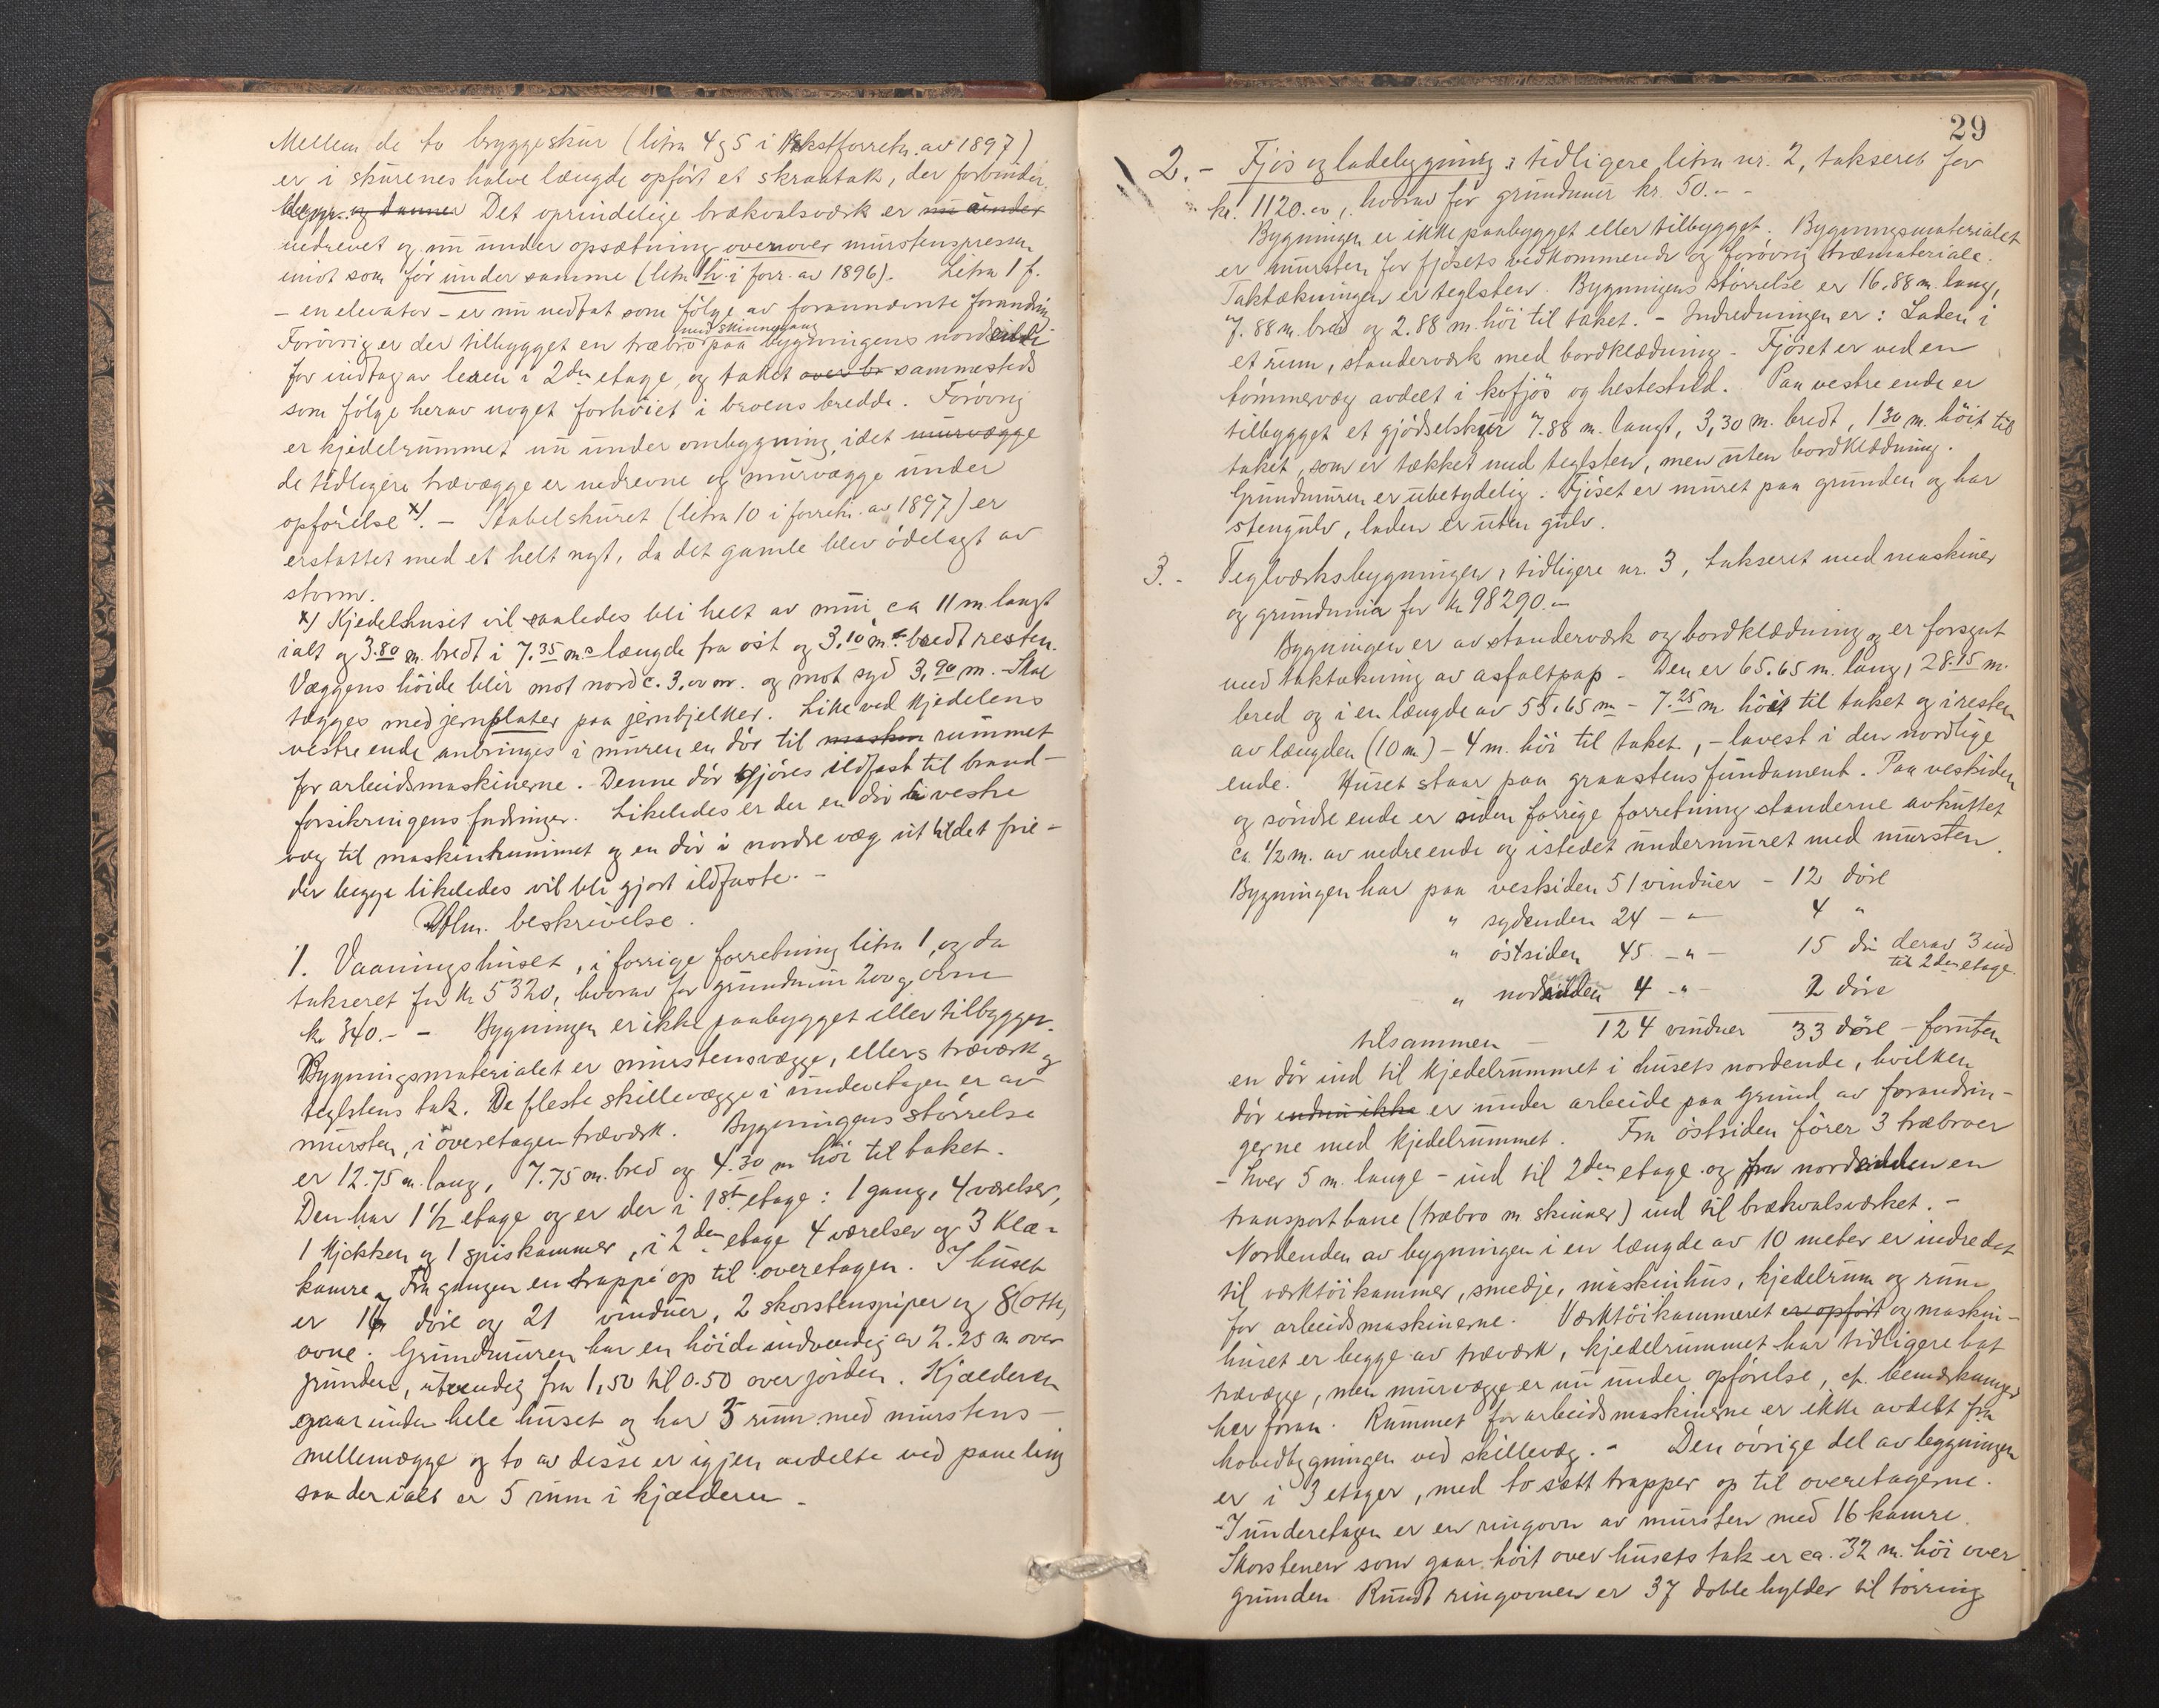 Mellem de to bryggeskur (litra 4 g 5 i takstforretn. av 1897)
er i skurenes halve længde opført et skraatak, der forbinder
og danner Det oprindelige brækvalsværk er nu under
nedrevet og nu under opsætning ovenover murstenspressen
imot som før under samme (litra h i forr. av 1896). Litra 1 f.
– en elevator – er nu nedtat som følge av forannævnte forandring
Forøvrig er der tilbygget en træbro med skinnegang paa bygningens nordende
for indtag av leren i 2den etage, og taket over br sammesteds
som følge herav noget forhøiet i broens bredde. Forøvrig
er kjedelrummet nu under ombygning, idet murvægge
de tidligere trævægge er nedrevne og murvægge under
opførelse x). – Stabelskuret (litra 10 i forretn. av 1897) er
erstattet med et helt nyt, da det gamle blev ødelagt av
storm.
x) Kjedelhuset vil saaledes bli helt av mur ca 11 m. langt
ialt og 3.80 m. bredt i 7.35 m.s længde fra øst og 3.10 m. bredt resten.
Væggens høide blir mot nord c. 3.00 m. og mot syd 3,90 m. – Skal
tægges med jernplater paa jernbjelker. Like ved kjedelens
vestre ende anbringes i muren en dør til maskin rummet
for arbeidsmaskinerne. Denne dør gjøres ildfast til brand-
forsikringens fordringer. Likeledes er der en dør i vestre
væg til maskinrummet og en dør i nordre væg ut til det frie –
der begge likeledes vil bli gjort ildfaste. –
Alm. beskrivelse.
1. Vaaningshuset, i forrige forretning litra 1, og da
takseret for kr 5320, hvorav for grundmur 200 og ovne
kr 340.- – Bygningen er ikke paabygget eller tilbygget.
Bygningsmaterialet er murstensvægge, ellers træverk og
teglstens tak. De fleste skillevægge i underetagen er av
mursten, i overetagen træverk. Bygningens størrelse
er 12.75 m. lang, 7.75 m. bred og 4.30 m høi til taket.
Den har 1½ etage og er der i 1ste etage: 1 gang, 4 værelser,
1 kjøkken og 1 spiskammer, i 2den etage 4 værelser og 3 klæ-
kamre. Fra gangen en trappe op til overetagen. I huset
er 16 døre og 21 vinduer, 2 skorstenspiper og 8 (otte)
ovne. Grundmuren har en høide indvendig av 2.25 m over
grunden, utvendig fra 1,50 til 0.50 over jorden. Kjælderen
gaar under hele huset og har 3 rum med murstens-
mellemvægge og to av disse er igjen avdelte ved paneling
saa der ialt er 5 rum i kjælderen –
29
2. – Fjøs og ladebygning: tidligere litra nr. 2, takseret for
kr. 1120.00, hvorav for grundmur kr. 50.- –
Bygningen er ikke paabygget eller tilbygget. Bygningsmaterialet
er mursten for fjøsets vedkommende og forøvrig træmateriale.
Taktækningen er teglsten. Bygningens størrelse er 16.88 m. lang,
7.88 m. bred og 2.88 m. høi til taket. – Indredningen er: Laden i
et rum, standerværk med bordklædning – Fjøset er ved en
tømmervæg avdelt i kofjøs og hestestald. Paa vestre ende er
tilbygget et gjødselskur 7.88 m. langt, 3,30 m. bredt, 1.30 m. høit til
taket, som er tækket med teglsten, men uten bordklædning.
Grundmuren er ubetydelig. Fjøset er muret paa grunden og har
stengulv, laden er uten gulv.
3. – Teglværksbygningen, tidligere nr. 3, takseret med maskiner
og grundmur for kr 98290.–
Bygningen er av standerværk og bordklædning og er forsynt
med taktækning av asfaltpap – Den er 65.65 m. lang, 28.15 m.
bred og i en længde av 55.65 m – 7.25 m. høit til taket og i resten
av længden (10 m.) – 4 m. høi til taket, – lavest i den nordlige
ende. Huset staar paa graastens fundament. Paa vestsiden
og søndre ende er siden forrige forretning standerne avkuttet
ca. 1/2 m. av nedre ende og istedet undermuret med mursten.
Bygningen har paa vestsiden 51 vinduer – 12 døre
" sydenden 24 – " – 4 "
" østsiden 45 – " – 15 dør derav 3 ind til 2den etage.
" nordenden 4 – " – 2 døre
tilsammen – 124 vinduer 33 døre – foruten
en dør ind til kjedelrummet i husets nordende, hvilken
dør endnu ikke er under arbeide paa grund av forandrin-
gerne med kjedelrummet. Fra østsiden fører 3 træbroer
– hver 5 m. lange – ind til 2den etage og fra nordenden en
transportbane (træbro m. skinner) ind til brækvalsværket. –
Nordenden av bygningen i en længde av 10 meter er indredet
til værktøikammer, smedje, maskinhus, kjedelrum og rum
for arbeidsmaskinerne. Værktøikammeret er opført og maskin-
huset er begge av træverk, kjedelrummet har tidligere hat
trævægge, men murvægge er nu under opførelse, cf. bemærkninger
her foran. Rummet for arbeidsmaskinerne er ikke avdelt fra
hovedbygningen ved skillevæg. – Den øvrige del av bygningen
er i 3 etager, med to sætt trapper op til overetagerne.
– I underetagen er en ringovn av mursten med 16 kamre.
Skorstenen som gaar høit over husets tak er ca. 32 m. høi over
grunden. Rundt ringovnen er 37 doble hylder til tørring